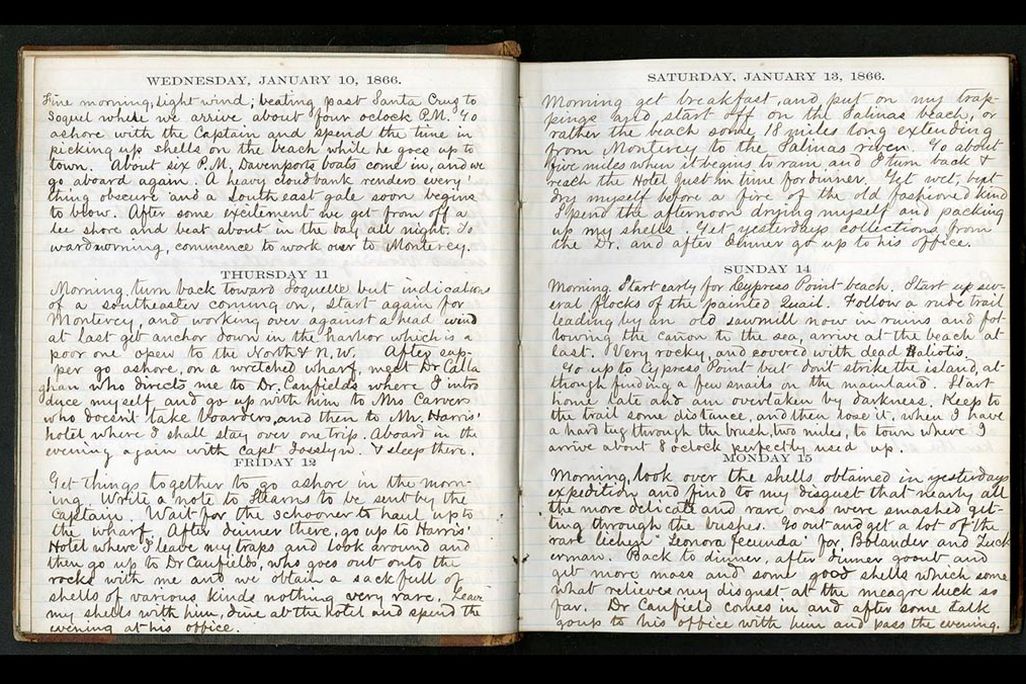 WEDNESDAY, JANUARY 10, 1866.
Fine morning, light wind; beating past Santa Cruz to
Soquel where we arrive about four oclock P.M. Go
ashore with the Captain and spend the time in
picking up shells on the beach while he goes up to
town. About six P.M. Davenports boats come in, and we
go aboard again. A heavy cloud bank renders every
thing obscure and a south east gale soon begins
to blow. After some excitement we get from off a
lee shore and beat about in the bay all night. To
ward morning, commence to work over to Monterey.
THURSDAY 11
Morning, turn back toward Soquelle but indications
of a southeaster coming on, start again for
Monterey, and working over against a head wind
at last get anchor down in the harbor which is a
poor one open to the North & N.W. After sup-
per go ashore, on a wretched wharf, meet Dr Calla
ghan who directs me to Dr. Canfields where I intro
duce myself and go up with him to Mrs Carvers
who doesent take boarders, and then to Mr. Harris'
hotel where I shall stay over one trip. Aboard in the
evening again with Capt Josslyn. & sleep there.
FRIDAY 12
Get things together to go ashore in the morn-
ing. Write a note to Stearns to be sent by the
Captain. Wait for the schooner to haul up to
the wharf. After dinner there, go up to Harris'
Hotel where I leave my traps and look around and
then go up to Dr Canfields, who goes out onto the
rocks with me and we obtain a sack full of
shells of various kinds nothing very rare. Leave
my shells with him, dine at the hotel and spend the
evening at his office.
SATURDAY, JANUARY 13, 1866.
Morning get breakfast, and put on my trap-
pings and start off on the Salinas beach, or
rather the beach some 18 miles long extending
from Monterey to the Salinas river. Go about
five miles when it begins to rain and I turn back &
reach the Hotel just in time for dinner. Get wet, but
dry myself before a fire of the old fashioned kind
Spend the afternoon drying myself and packing
up my shells. Get yesterdays collections from
the Dr. and after dinner go up to his office.
SUNDAY 14
Morning. Start early for Cypress Point beach. Start up sev-
eral flocks of the painted Quail. Follow a rude trail
leading by an old sawmill now in ruins and fol-
lowing the cañon to the sea, arrive at the beach at
last. Very rocky, and covered with dead Haliotis.
Go up to Cypress Point but dont strike the island, al-
though finding a few snails on the mainland. Start
home late and am overtaken by darkness. Keep to
the trail some distance, and then lose it, when I have
a hard tug through the brush, two miles, to town where I
arrive about 8 oclock perfectly used up.
MONDAY 15
Morning, look over the shells obtained in yesterdays
expedition and find to my disgust that nearly all
the more delicate and rare ones were smashed get-
ting through the bushes. Go out and get a lot of the
rare lichen "Leonora fecunda" for Bolander and Zuck
erman. Back to dinner, after dinner go out and
get more moss and some good shells which some
what relieves my disgust at the meagre luck so
far. Dr Canfield comes in and after some talk
go up to his office with him and pass the evening.